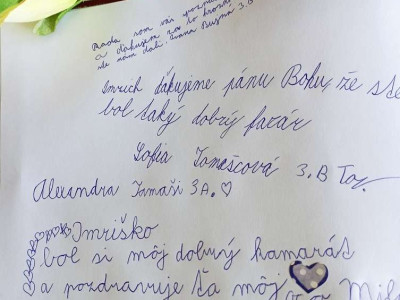 Rada som vás poznala
a ďakujem za to krásne
ste nám dali. Ivana 3.B
Imrich ďakujeme pánu Bohu, že ste
bol taký dobrý farár
Sofia Tomešcová 3.B
Alexandra Tamaši 3A.♡
Imriško
bol si môj dobrý kamarát
a pozdravuje ťa môj